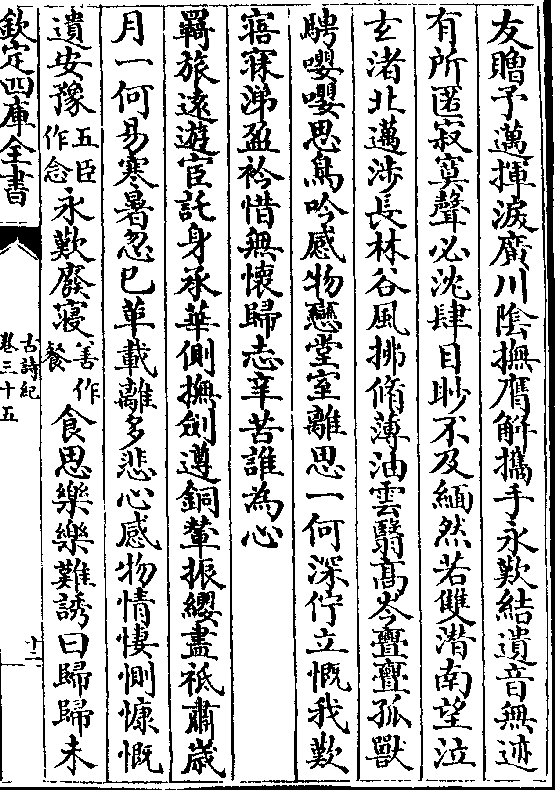 友贈予邁揮淚廣川陰撫膺解攜手永歎結遺音無迹
有所匿寂寞聲必沈肆目眇不及緬然若雙潛南望泣
玄渚北邁涉長林谷風拂脩薄油雲翳高岑亹亹孤獸
騁嚶嚶思鳥吟感物戀堂室離思一何深佇立慨我歎
寤寐涕盈衿惜無懷歸志辛苦誰為心
羈旅遠遊宦託身承華側撫劍遵銅輦振纓盡祗肅歲
月一何易寒暑忽已革載離多悲心感物情悽惻慷慨
遺安豫五臣作念永歎廢寢善作餐食思樂樂難誘曰歸歸未
欽定四庫全書
古詩紀
卷三十五
十二